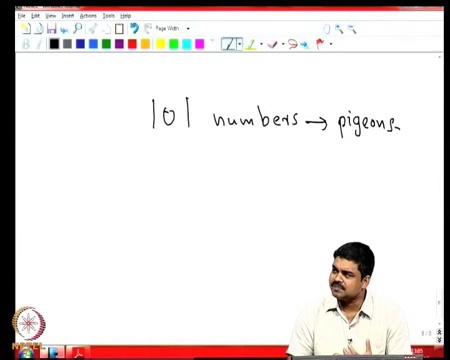 File Edit View Insert Actions Tools Help
Page Width
101 numbers → pigeons.